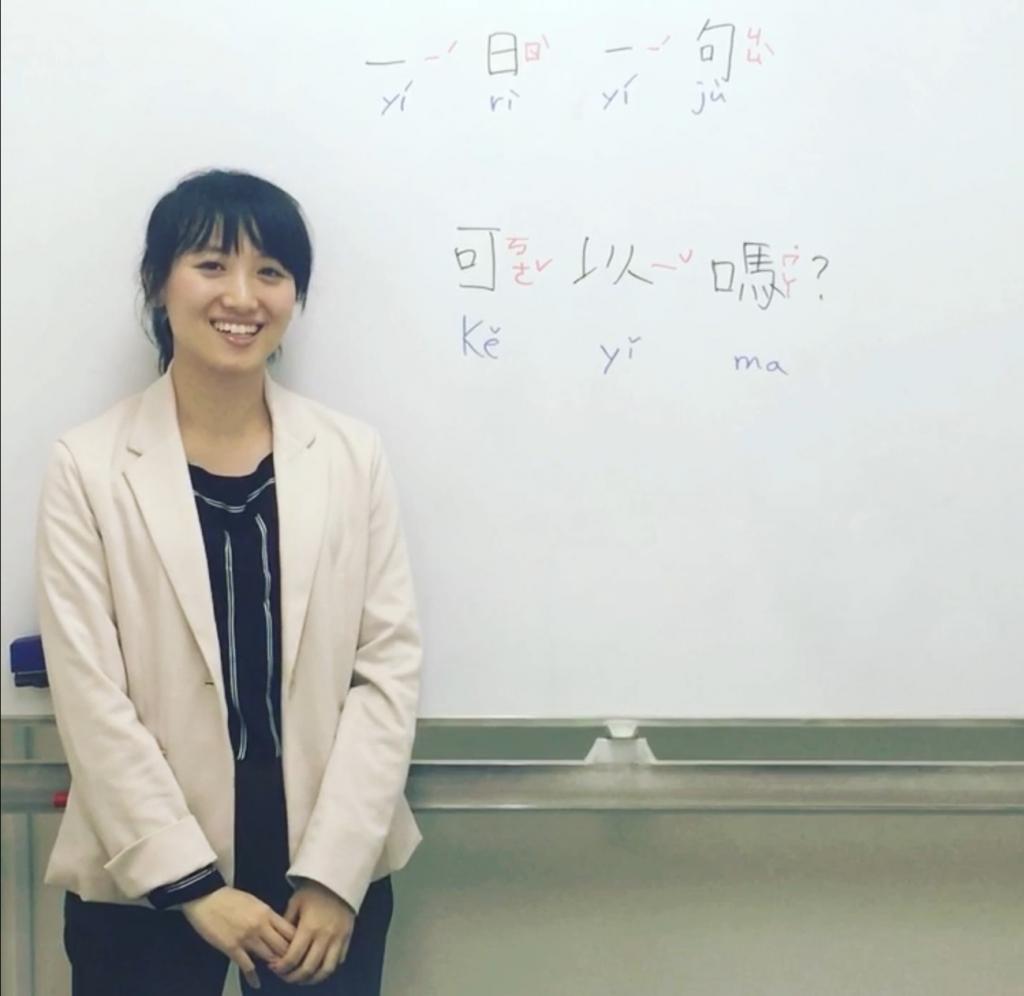 一 ㄧˊ 日 ㄖˋ 一 ㄧˊ 句 ㄐㄩˋ
yí rì yí jù
可 ㄎㄜˇ 以 ㄧˇ 嗎 ˙ㄇㄚ ?
Kě yǐ ma